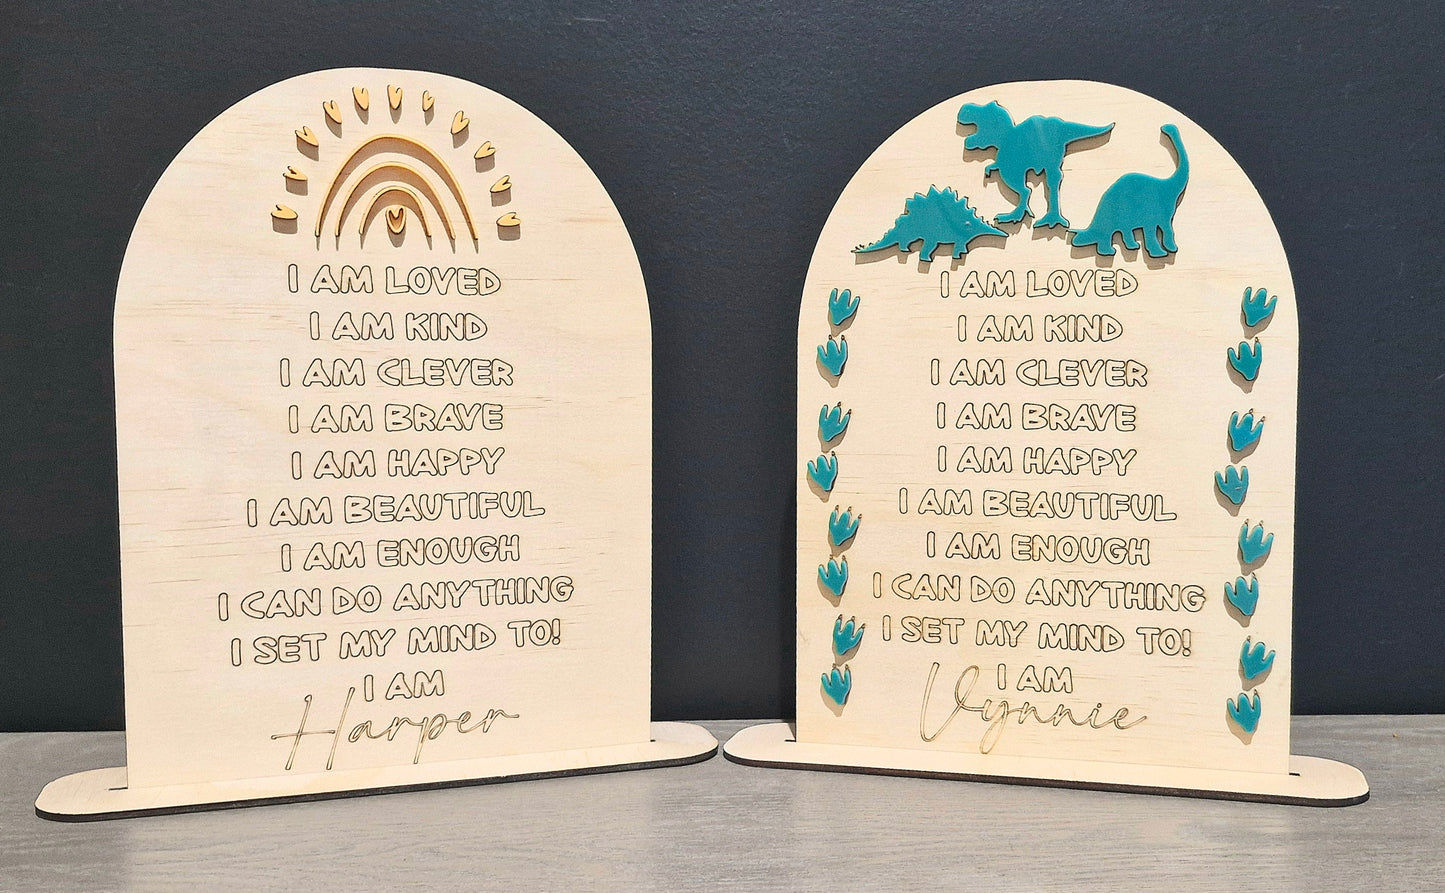 I AM LOVED
I AM KIND
I AM CLEVER
I AM BRAVE
I AM HAPPY
I AM BEAUTIFUL
I AM ENOUGH
I CAN DO ANYTHING
I SET MY MIND TO!
I AM
Harper
I AM LOVED
I AM KIND
I AM CLEVER
I AM BRAVE
I AM HAPPY
I AM BEAUTIFUL
I AM ENOUGH
I CAN DO ANYTHING
I SET MY MIND TO!
I AM
Vynnie